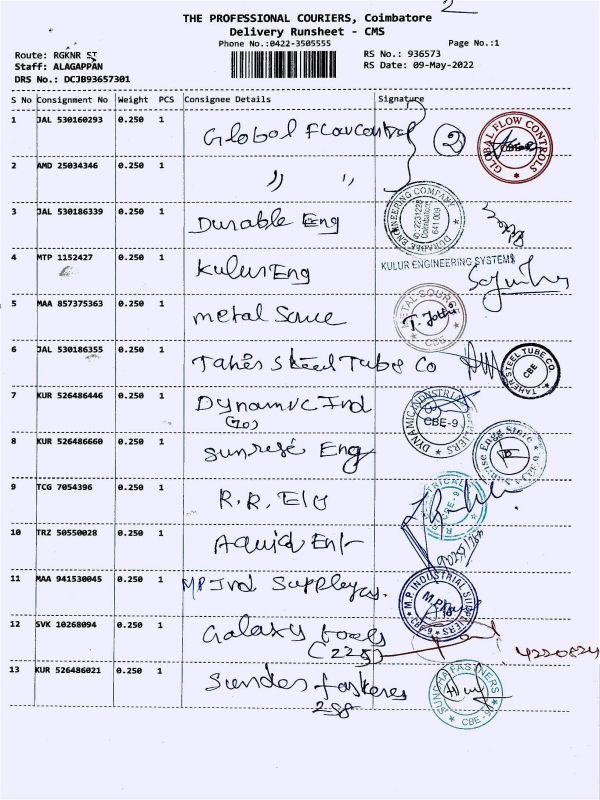 2
THE PROFESSIONAL COURIERS, Coimbatore
Delivery Runsheet - CMS
Phone No.:0422-3505555 Page No.:1
Route: RGKNR ST RS No.: 936573
Staff: ALAGAPPAN RS Date: 09-May-2022
DRS No.: DCJB93657301
S No Consignment No Weight PCS Consignee Details Signature
1 JAL 530160293 0.250 1 Global Flowcontrol 2 GLOBAL FLOW CONTROLS
2 AMD 25034346 0.250 1 " "
3 JAL 530186339 0.250 1 Durable Eng DURABLE ENGINEERING COMPANY Coimbatore 641 009
4 MTP 1152427 0.250 1 Kulur Eng KULUR ENGINEERING SYSTEMS
5 MAA 857375363 0.250 1 metal CBE
6 JAL 530186355 0.250 1 Taher Steel Tube Co TAHER STEEL TUBE CO. CBE
7 KUR 526486446 0.250 1 Dynamic Ind DYNAMIC INDUSTRIAL SUPPLIERS CBE-9
8 KUR 526486660 0.250 1 Sunrise Eng
9 TCG 7054396 0.250 1 R.R. CBE-9
10 TRZ 50550028 0.250 1
11 MAA 941530045 0.250 1 MP Ind M.P. INDUSTRIAL SUPPLIERS
12 SVK 10268094 0.250 1 Galaxy tools
13 KUR 526486021 0.250 1 FASTNERS CBE-9